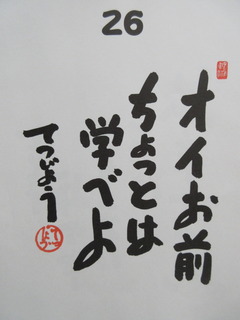 26
オイお前
ちょっとは
学べよ
てつじょう